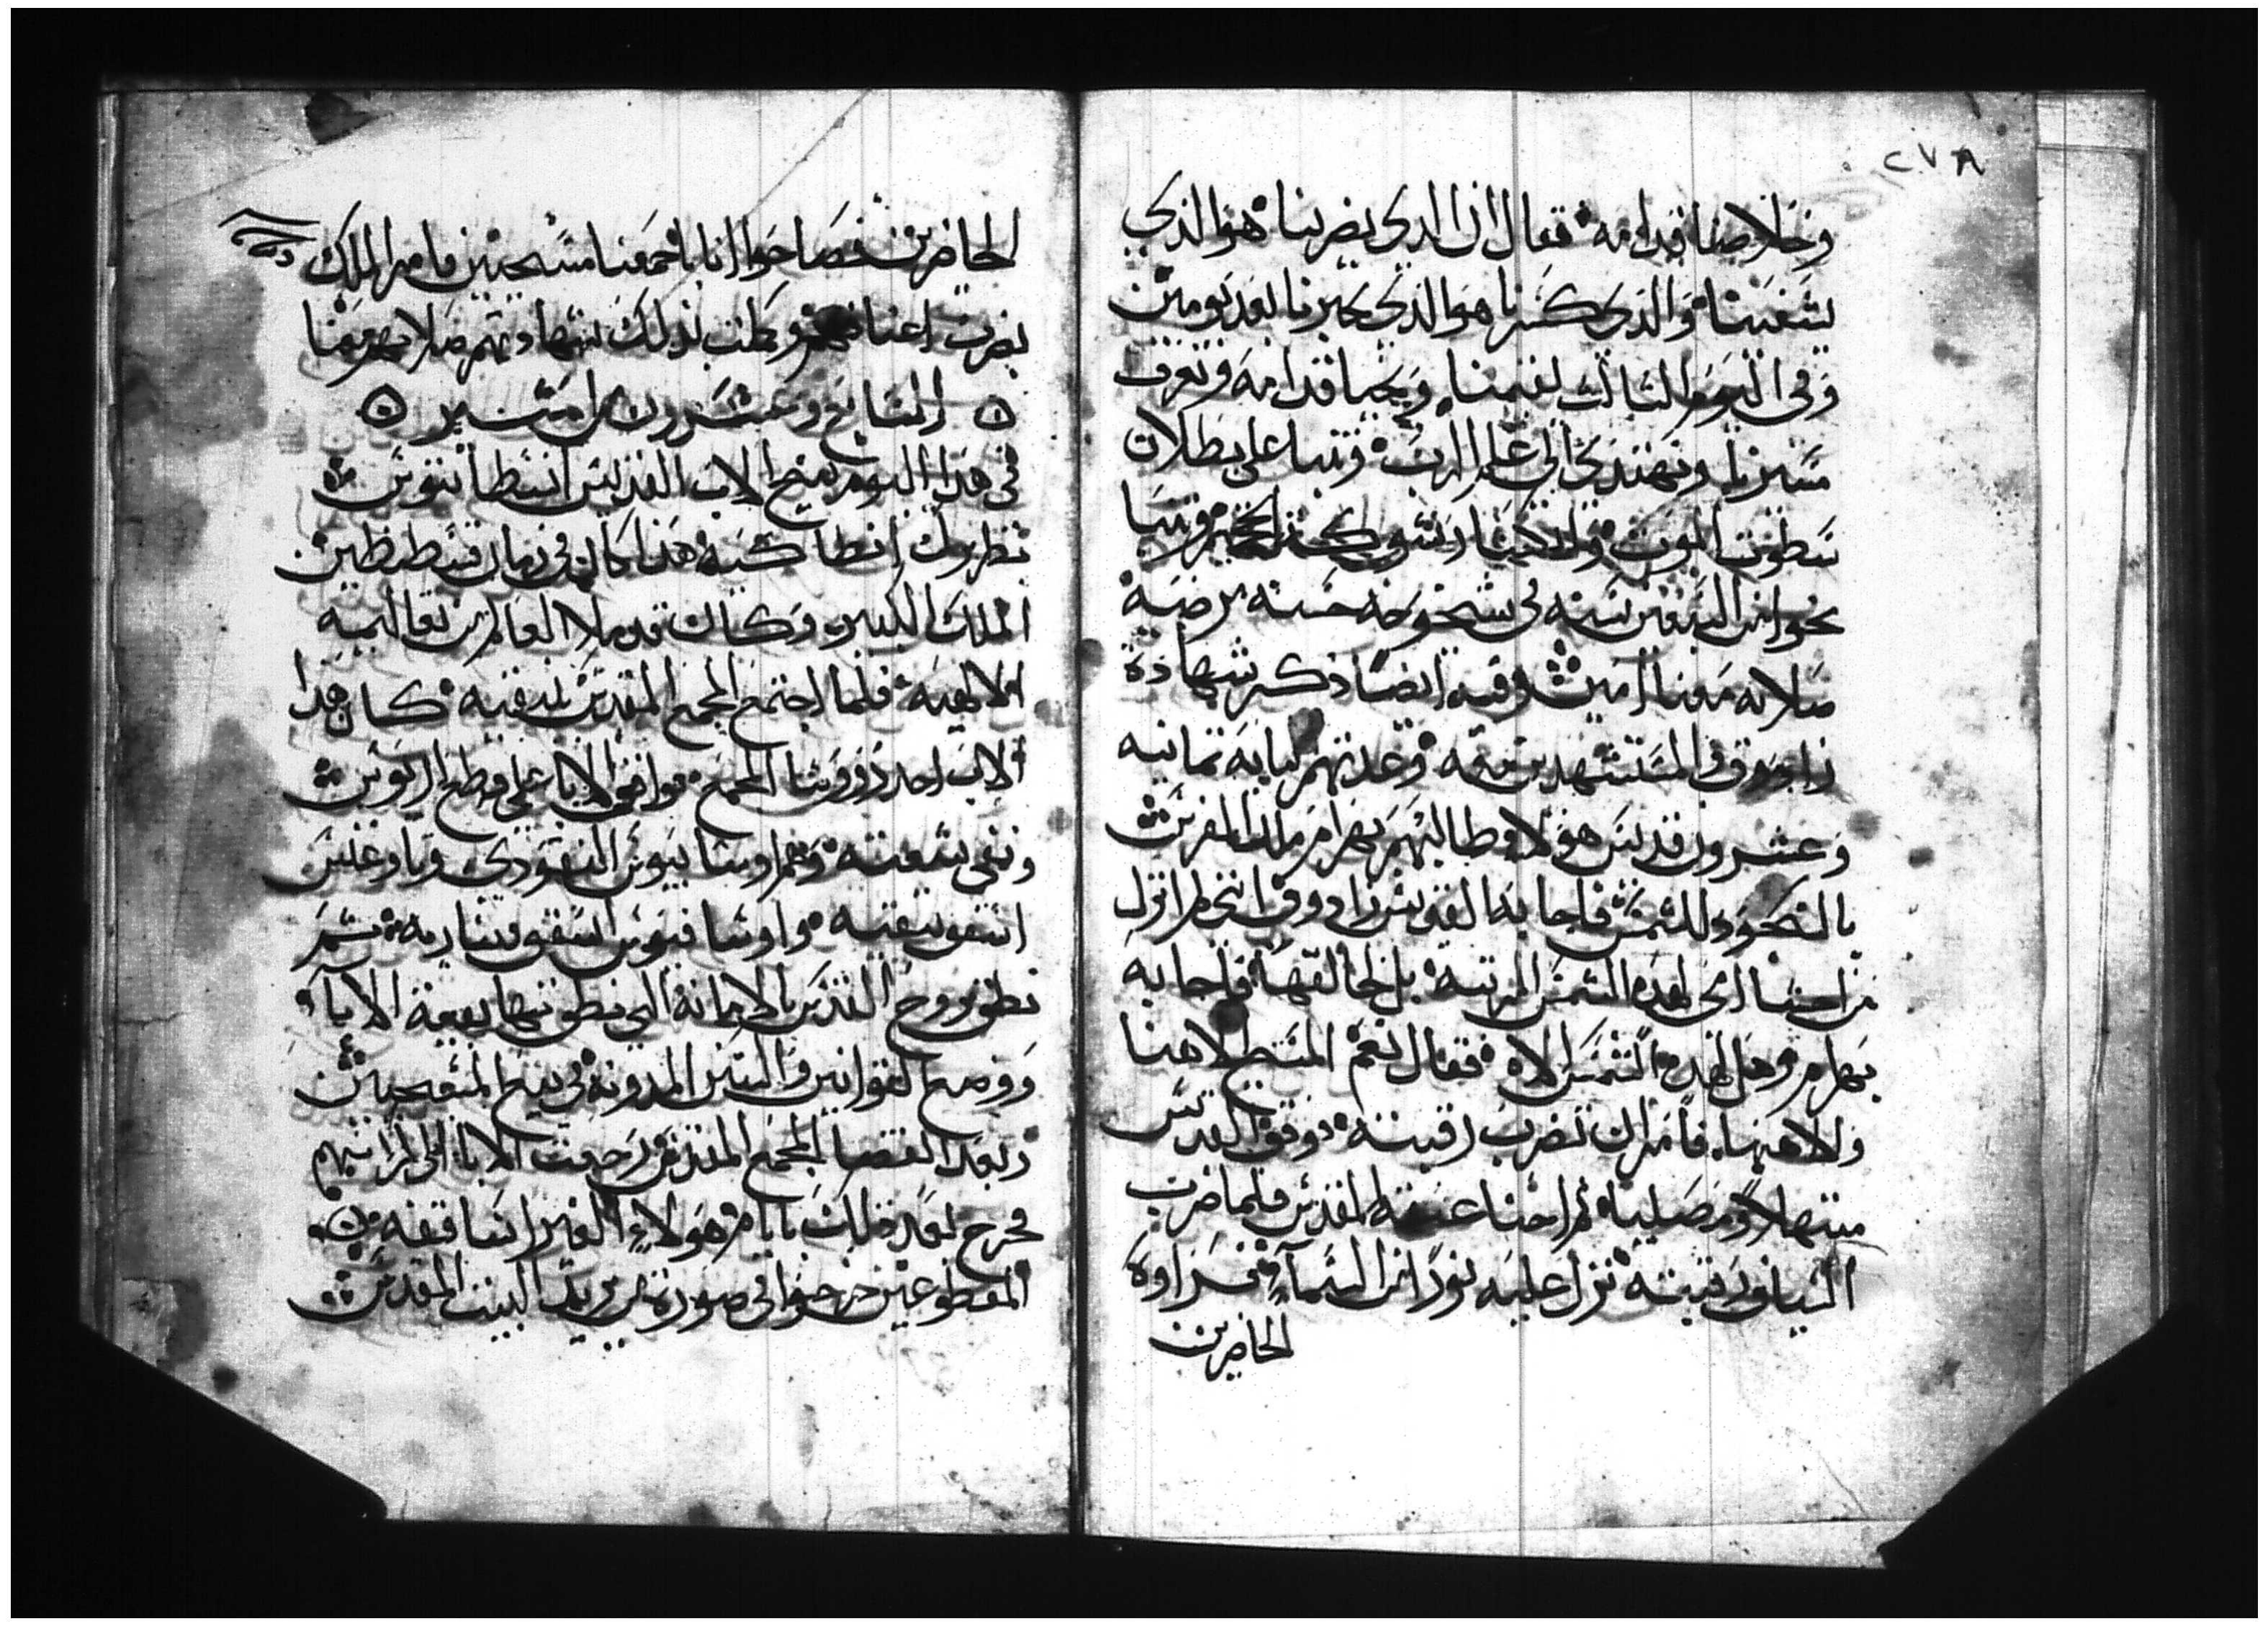 ٢٧٨
وخلاصنا قدامه فقال ان الدي يضربنا هو الذي
يشفينا والذي كسرنا هو الذي يجبرنا بعد يومين
وفي اليوم الثالث يقيمنا ونحيا قدامه ونعرف
مسيرنا ونهتدي الي علم الرب وتنبا علي بطلان
سطوت الموت شوكت الجحيم وتنبا
نحوا من السبعين سنه في شيخوخه حسنه مرضيه
صلاته معنا امين وفيه ايضا ذكر شهادة
زادوق والمستشهدين معه وعدتهم ماية تمانيه
وعشرون قديس هولا وطالبهم بهرام ملك الفرس
بالسجود للشمس فاجابه القديس زادوق انني لم ازل
من احشا امي لهده الشمس المرتبه بل لخالقها فاجابه
بهرام وهل لهده الشمس الاه فقال نعم المسيح لاهنا
ولاهها فامر ان تضرب رقبته دوق القديس
مبتهلا ومصليا ثم احنا عنقه المقدس فلما ضرب
السياف رقبته نزل عليه نورا من السمآ فراوه
الحاضرين
الحاضرين فصاحوا اننا باجمعنا مسيحيين فامر الملك
بضرب اعناقهم وكملت بذلك شهادتهم صلاتهم معنا
السابع وعشرون من امشير
في هذا اليوم تنيح الاب القديس انسطاتيوس
بطريرك انطاكيه هذا كان في زمان قسطنطين
الملك الكبير وكان قد ملا العالم من تعاليمه
الالهيه فلما اجتمع المجمع المقدس بنيقيه كان هذا
الاب احد رووسا المجمع ووافق الابا علي قطع اريوس
ونفي شيعته وهم اوسابيوس النيقودي وتاوغنس
اسقف نيقيه واوسافيوس اسقف قيساريه ثم
نطق بروح القدس بالامانه التي نطق بها بقية الابآ
ووضع القوانين والسنن المدونه في بيع المسيحيين
وبعد انقضا المجمع المقدس رجعت الابا الي كراسيهم
فخرج بعد ذلك بايام هولاء الغير اساقفه
المقطوعين خرجوا في صورة من يريد البيت المقدس